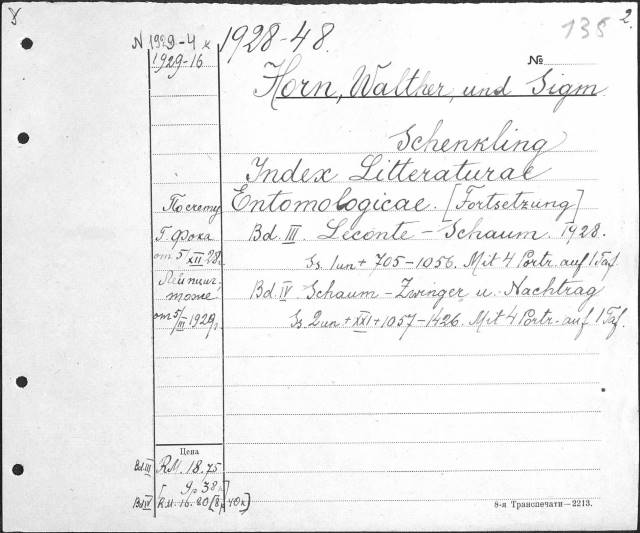 135
2.
N 1929-4 x 1928-48.
1929-16
№
Horn, Walther, und Sigm
Schenkling
Index Litteraturae
По счету Entomologicae. [Fortsetzung]
Г. Фока Bd. III. Leconte - Schaum. 1928.
от 5/XII 28. Ss. 1un + 705-1056. Mit 4 Portr. auf 1 Taf.
Лейпциг, Bd. IV Schaum - Zwinger u. Nachtrag
тоже
от 5/III 1929г. Ss. 2un + XXI + 1057-1426. Mit 4 Portr. auf 1 Taf.
Цена
Bd III RM. 18.75
[9р 38к]
Bd IV RM. 16.80 [8р 40к]
8-я Транспечати—2213.